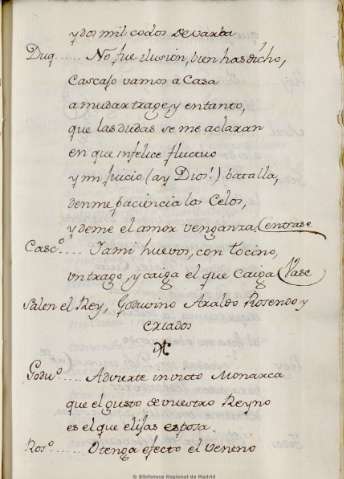 y dos mil codos de varba
Duq..... No fue ilusion, bien has dicho,
Cascajo vamos a Casa
a mudar trage, y entanto,
que las dudas se me aclaran
en que infelice fluctuo
y mi juicio (ay Dios!) batalla,
denme paciencia los Celos,
y deme el amor venganza (entrase
Casc.º .... Iami huevos, con tocino,
un trago, y caiga el que caiga (Vase
Salen el Rey, Goduino Araldo Rosendo y
criados
Godu.º .... Advierte invicto Monarca
que el gusto de vuestro Reyno
es el que elijas esposa.
Ros.º ... O tenga efecto el veneno
© Biblioteca Regional de Madrid